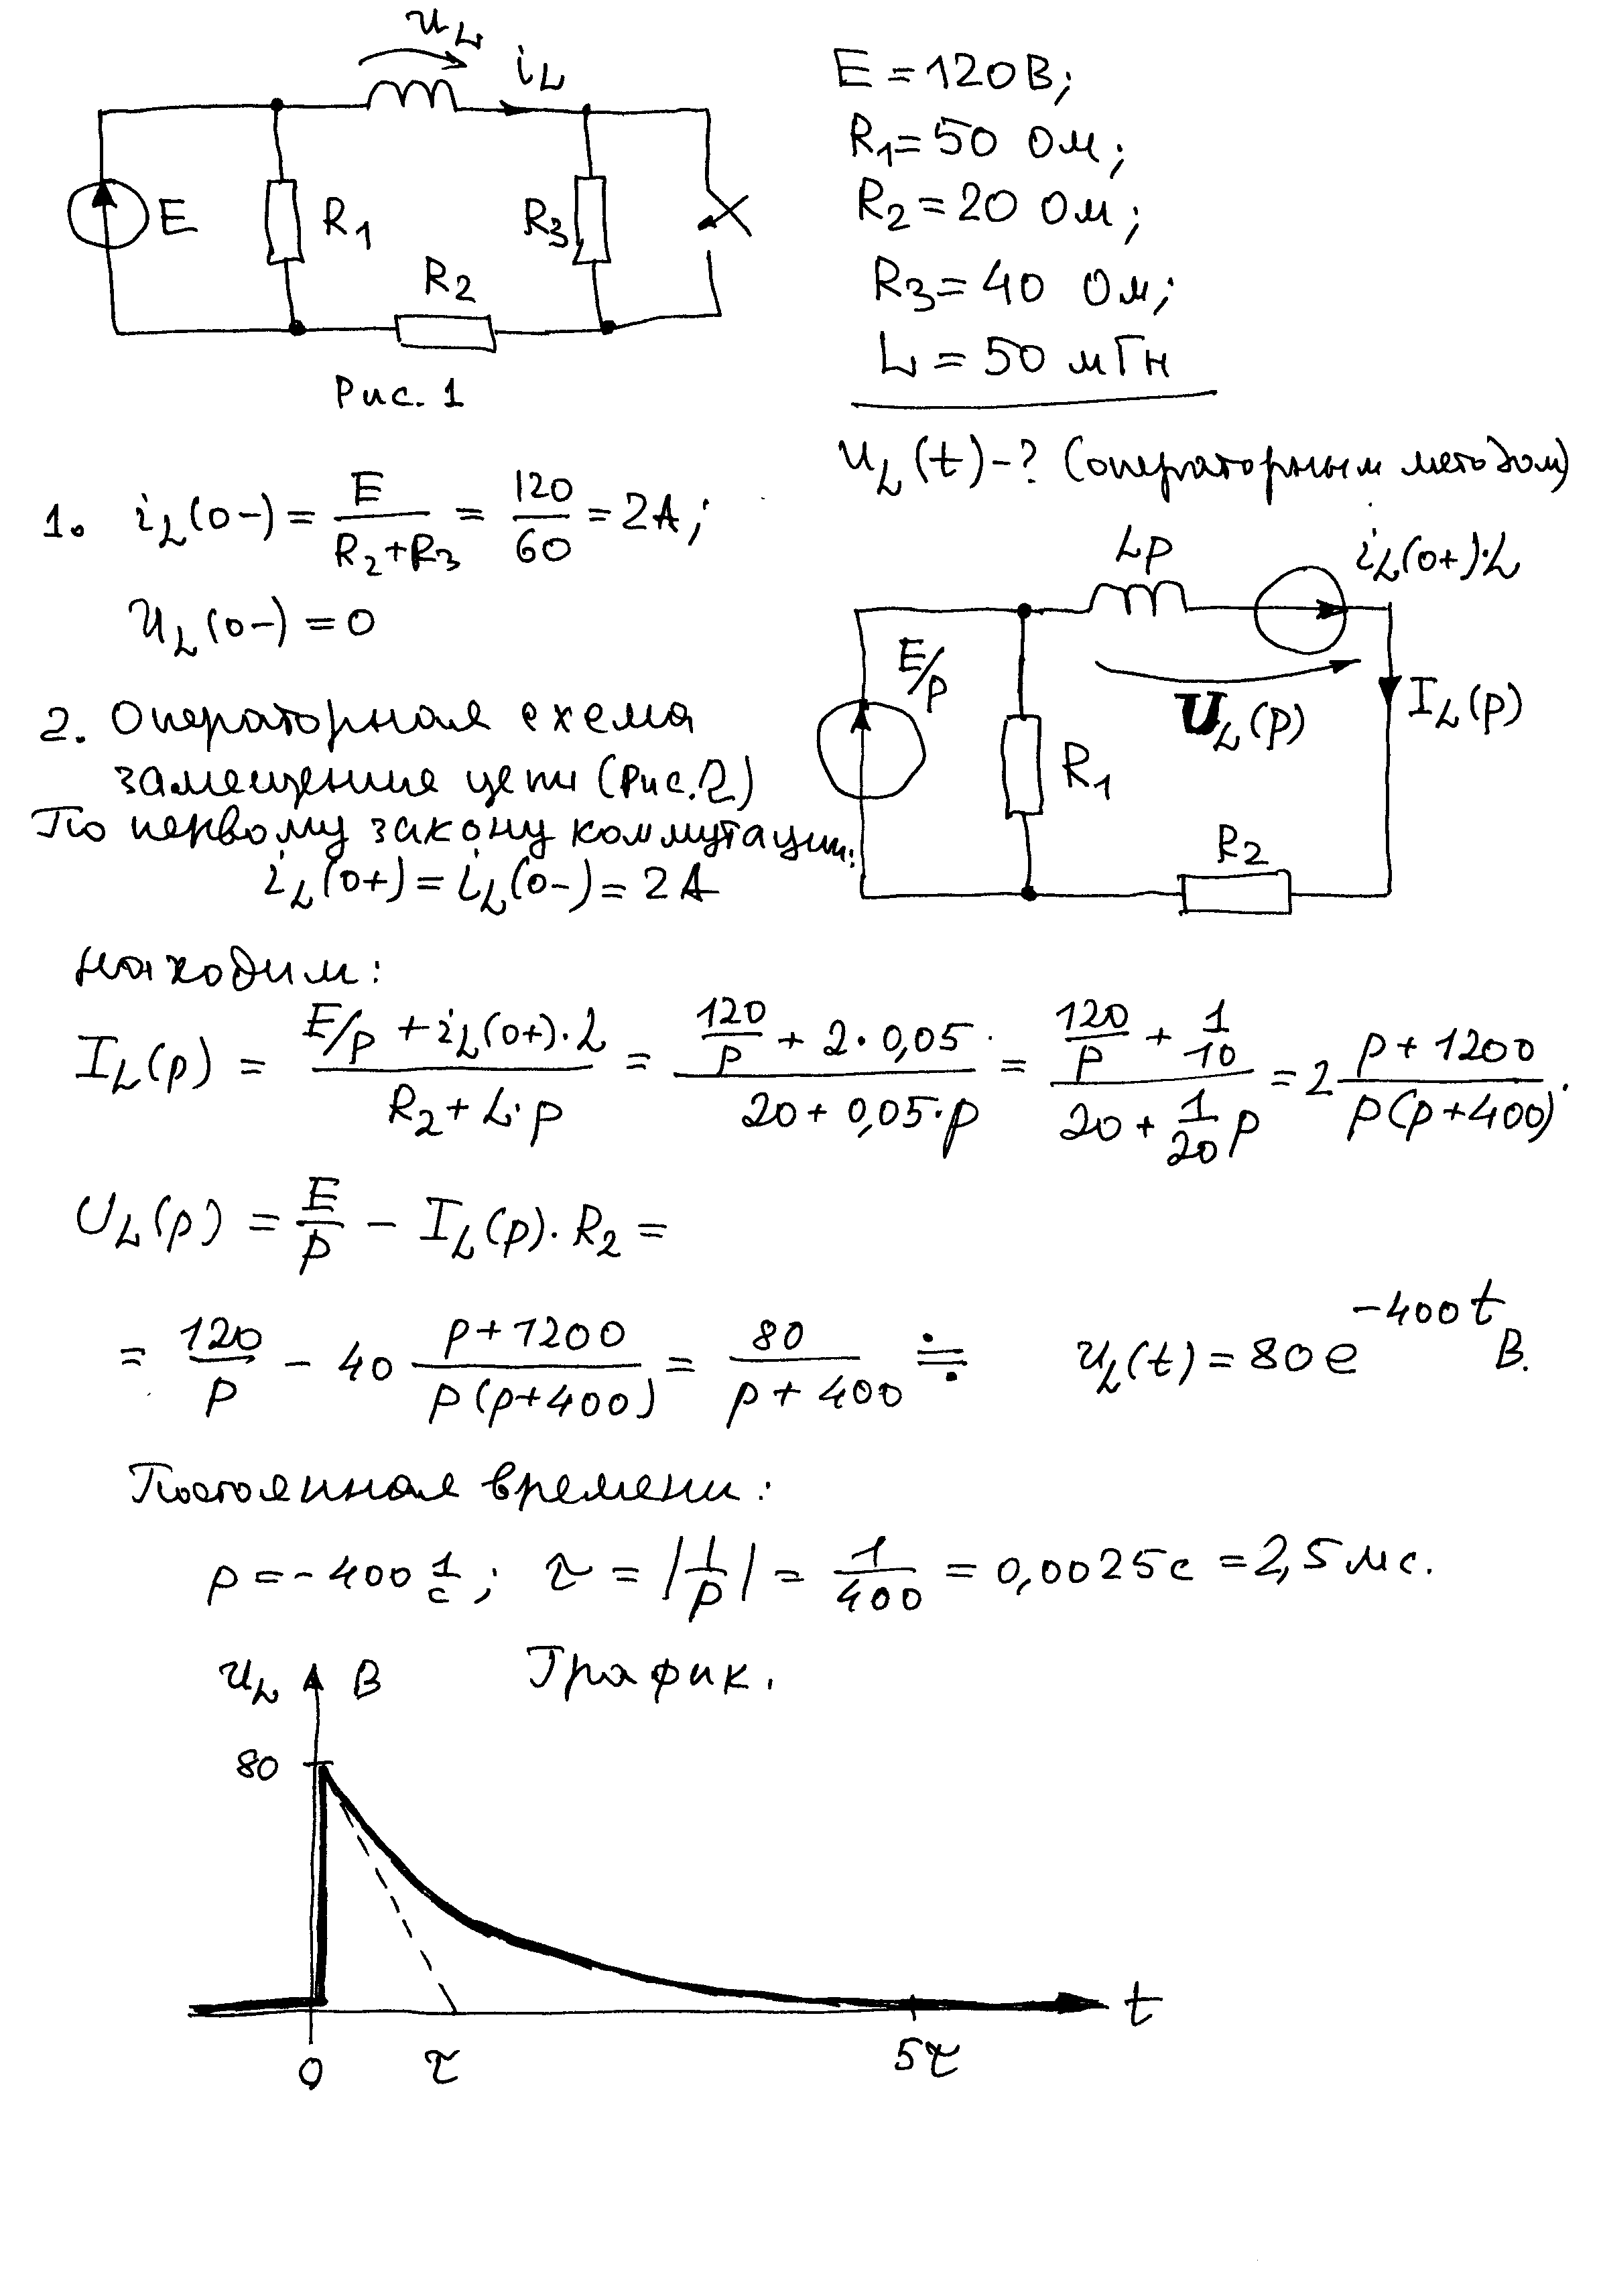 u_L
i_L
E
R₁
R₃
R₂
Рис. 1
E = 120 В;
R₁ = 50 Ом;
R₂ = 20 Ом;
R₃ = 40 Ом;
L = 50 мГн
u_L(t) - ? (операторным методом)
1. i_L(0-) = E/(R₂+R₃) = 120/60 = 2A;
u_L(0-) = 0
2. Операторная схема
замещение цепи (Рис. 2)
По первому закону коммутации:
i_L(0+) = i_L(0-) = 2 A
Lp
i_L(0+)·L
E/p
U_L(p)
I_L(p)
R₁
R₂
находим:
I_L(p) = (E/p + i_L(0+)·L)/(R₂ + L·p) = (120/p + 2·0,05)/(20 + 0,05·p) = (120/p + 1/10)/(20 + 1/20 p) = 2 (p + 1200)/(p(p+400)).
U_L(p) = E/p - I_L(p)·R₂ =
= 120/p - 40 (p + 1200)/(p(p+400)) = 80/(p + 400) ≑ u_L(t) = 80 e^(-400t) В.
Постоянная времени:
p = -400 1/с; τ = |1/p| = 1/400 = 0,0025 с = 2,5 мс.
График.
u_L В
80
0
τ
5τ
t